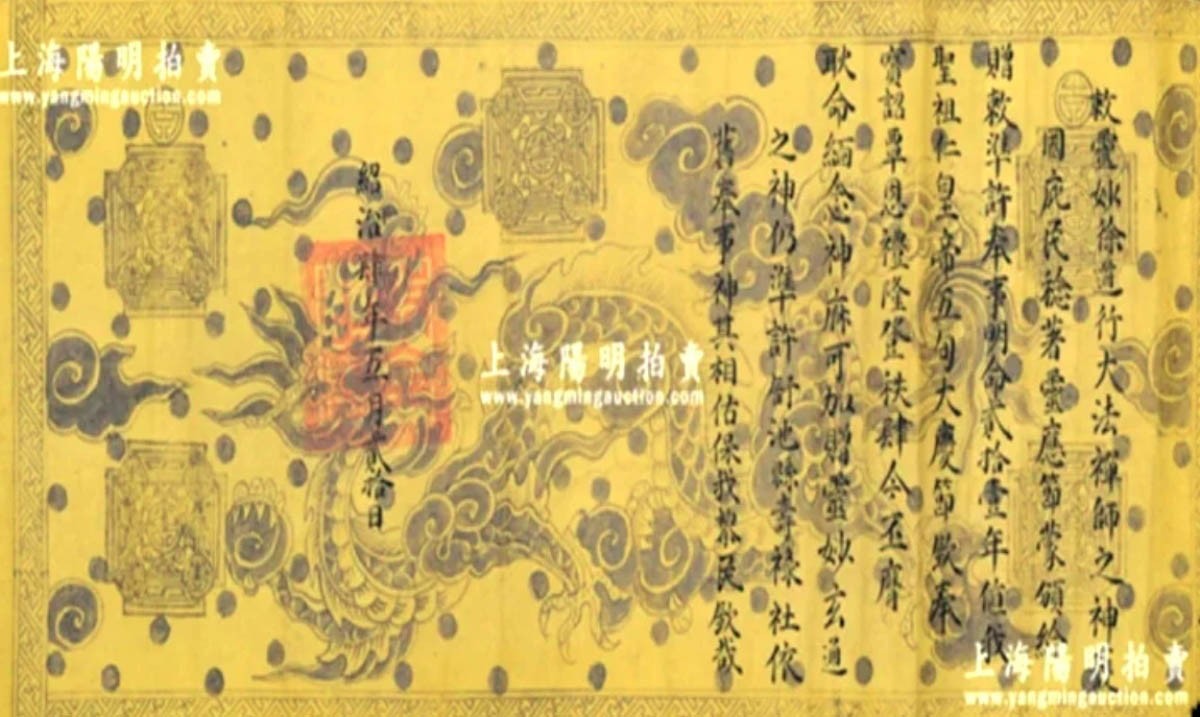 上海陽明拍賣
www.yangmingauction.com
敕靈妙徐道行大法禪師之神
國庇民稔著靈應節蒙頒給
贈敕準許奉事明命貳拾壹年值我
聖祖仁皇帝五旬大慶節欽奉
寳詔覃恩禮隆登秩肆今丕膺
耿命緬念神庥可加贈靈妙玄通
之神仍準許舒池縣壽祿社依
舊奉事神其相佑保我黎民欽哉
紹治 年五月貳拾日
上海陽明拍賣
www.yangmingauction.com
上海陽明拍賣
www.yangmingauction.com